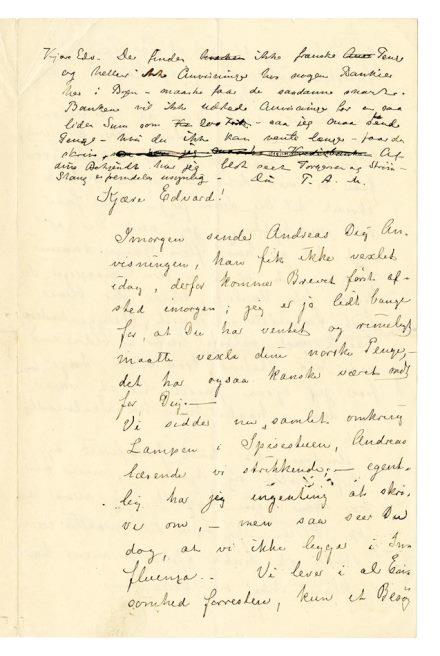 Kjære Edv. Der findes ikke franske Penge
og heller ikke Anvisninger hos nogen Bankier
her i Byen – maaske faaes de saadanne snart.
Banken vil ikke udstede Anvisninger for en saa
liden Sum som – saa jeg maa sende
Penge – hvis du ikke kan vente længe – faa de
skrive Af
dine Bekjendte har jeg blot seet Torgersen og
Stang er fremdeles usynlig. – Din T. A. M.
Kjære Edvard!
Imorgen sender Andreas Dig An-
visningen, han fik ikke vexlet
idag, derfor kommer Brevet først af-
sted imorgen; jeg er jo lidt bange
for, at Du har ventet og rimeligt
maatte vexle dine norske Penge, –
det har ogsaa kanske været godt
for Dig. –
Vi sidder nu samlet omkring
Lampen i Spisestuen, Andreas
læsende vi strikkende; – egent-
lig har jeg ingenting at skri-
ve om, – men saa seer Du
dog, at vi ikke ligger i In-
fluenza.. Vi lever i al Een-
somhed forresten, kun et Besøg